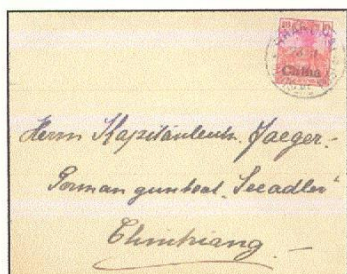 10 10
China
Herrn Kapitänleutn. Jaeger.-
German gunboat "Seeadler"
Chinkiang.-